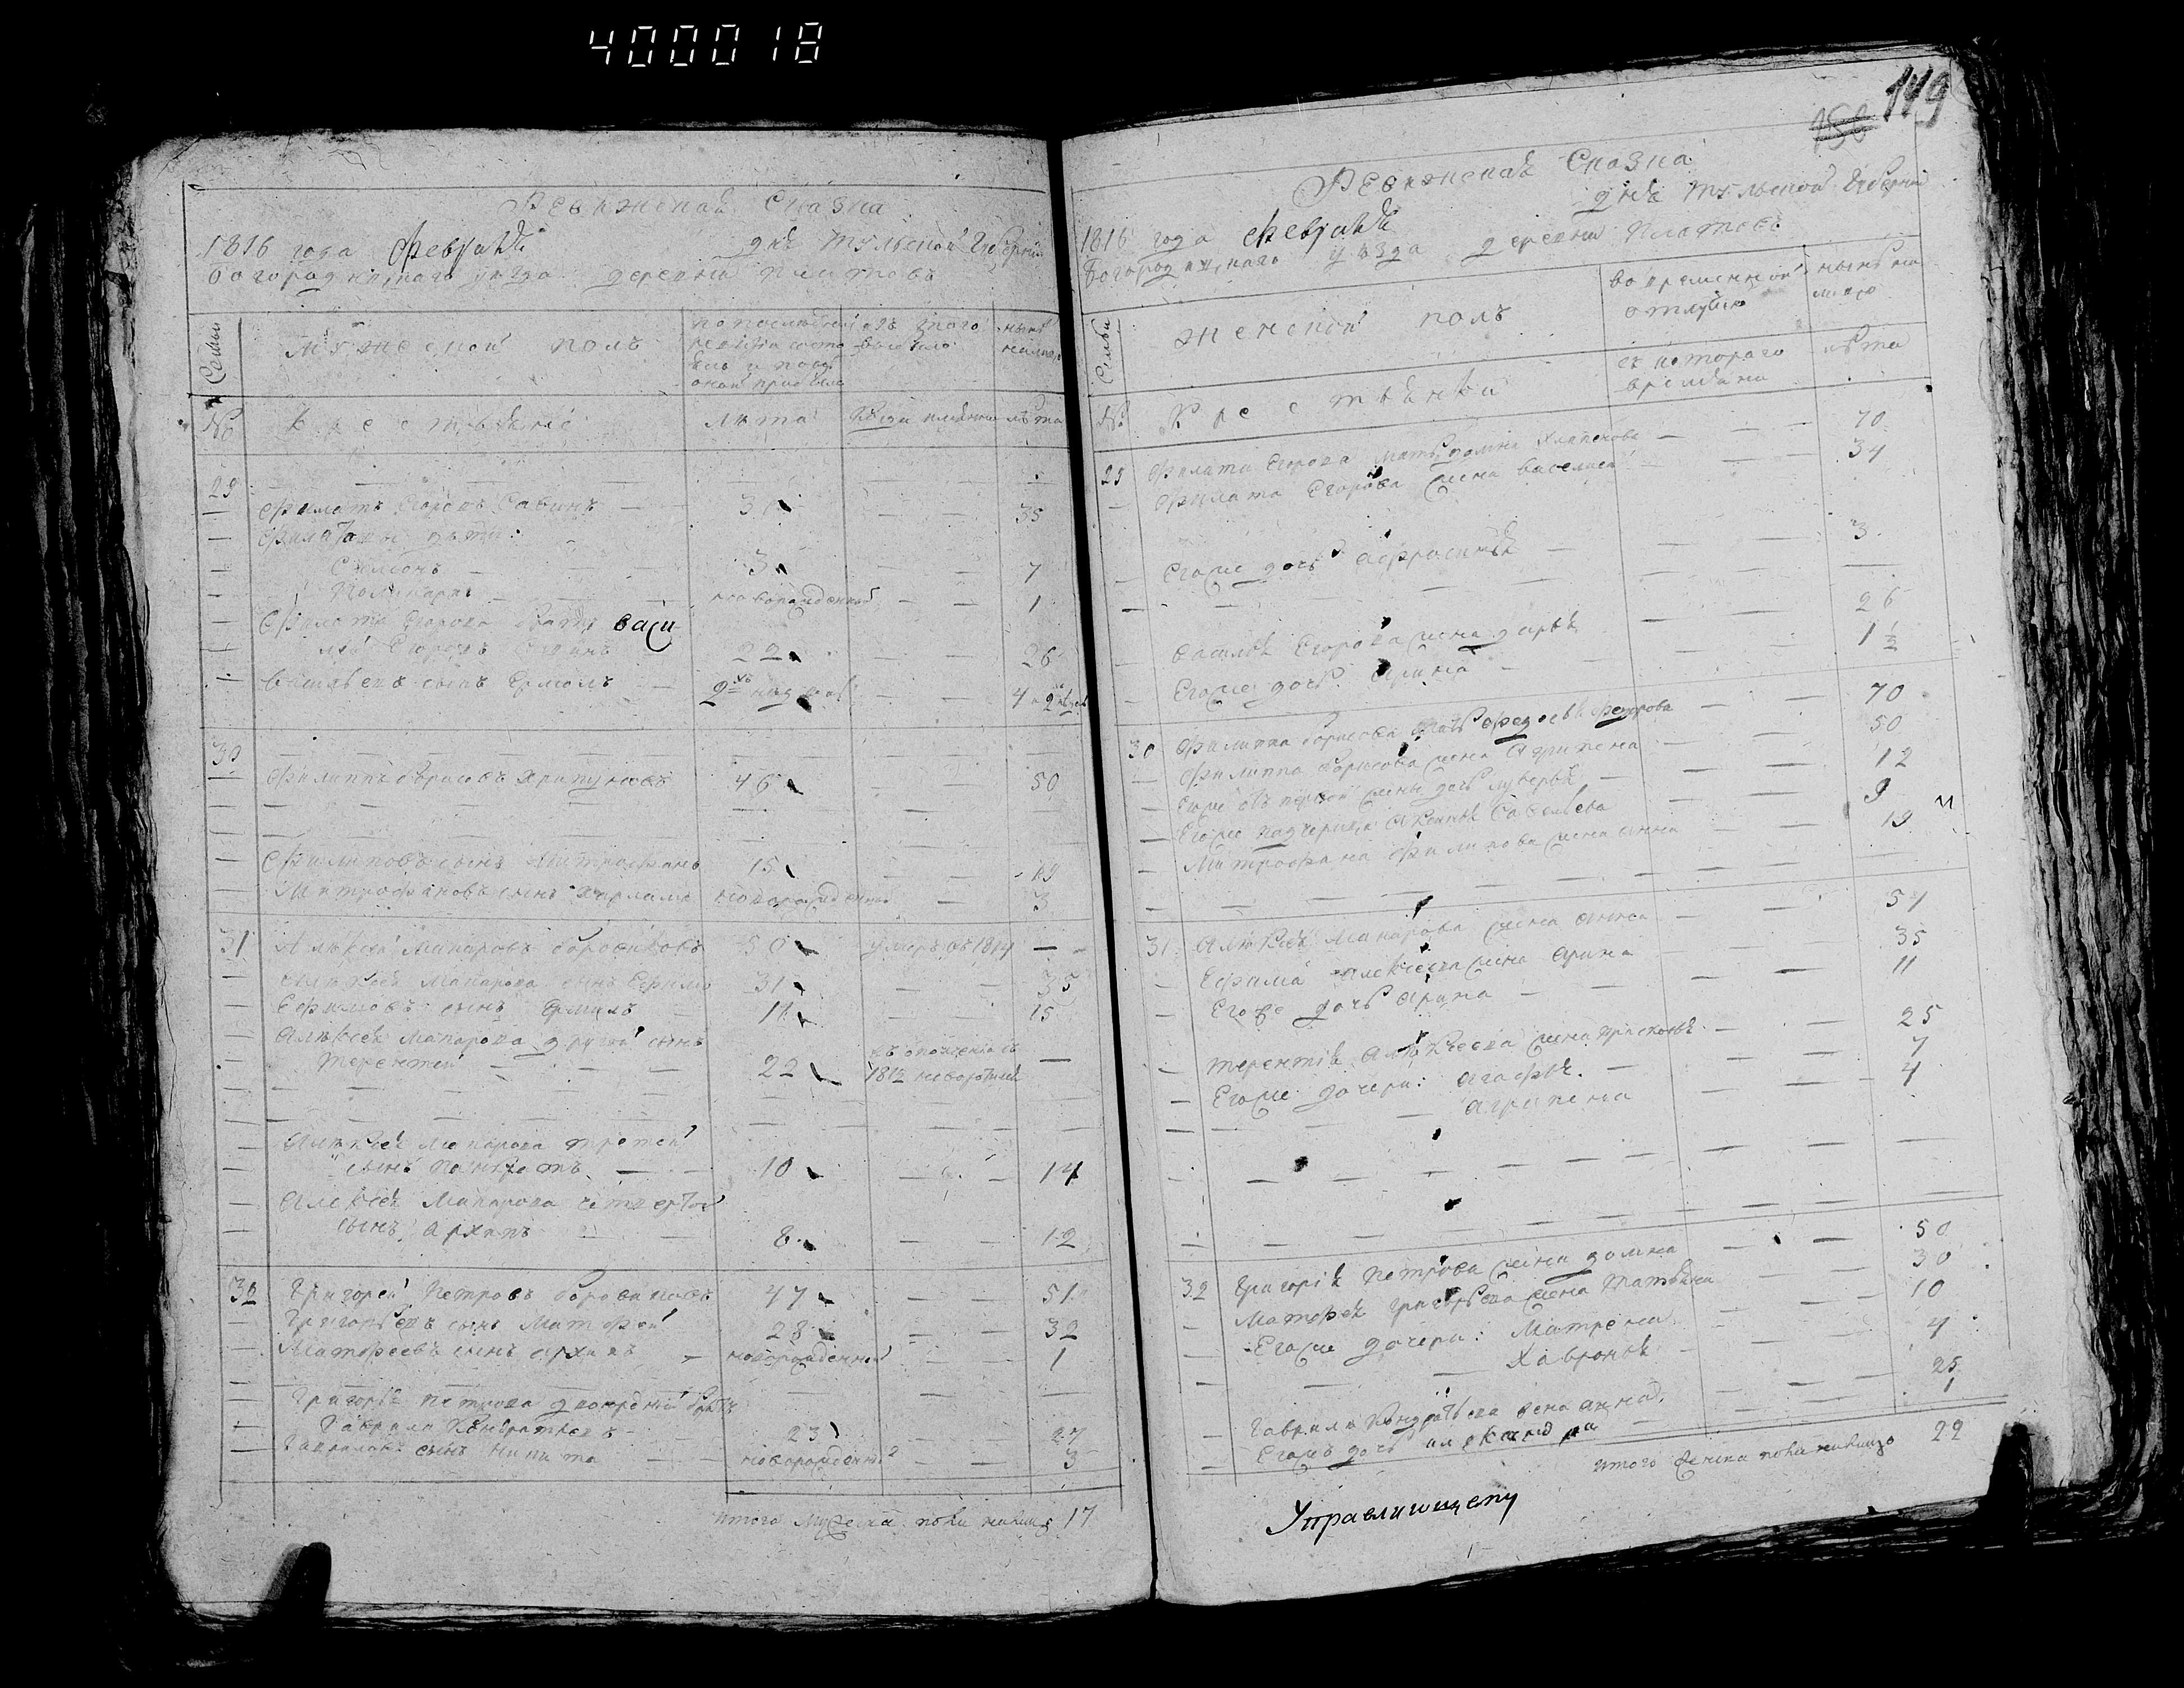 400018
Ревижская Сказка
1816 года Февраля дня Тульской Губернии
Богородицкаго уезда деревни
Семьи
Мужеской полъ
по последней ревизіи состояло и после оной прибыло
изъ того выбыло
ныне налицо
№
Крестьяне
лета
когда именно
лета
29
Филатъ Егоровъ Савинъ 31 35
Филатовы дети:
Семіонъ 3 7
новорожденной 1
Филата Егорова братъ Васи
лей Егоровъ Савинъ 22 26
Васильевъ сынъ Ермолъ 4
30
Филиппъ Борисовъ Хрипуновъ 46 50
Филиповъ сынъ Митрофанъ 15 19
Митрофановъ сынъ Харламъ новорожденной 3
31 Алексей Макаровъ Боровиковъ 50 умеръ въ 1814
Алексея Макарова сынъ Ефимъ 31 35
Ефимовъ сынъ Ермилъ 11 15
Алексея Макарова другой сынъ
Терентей 22 въ ополченіе въ 1812
Алексея Макарова третей
сынъ Панкратъ 10 14
Алексея Макарова четвертой
сынъ Архипъ 8 12
32 Григорей Петровъ Боровиковъ 47 51
Григорьевъ сынъ Матфей 28 32
Матфеевъ сынъ Архипъ новорожденной 1
Григорья Петрова двоюродной братъ
Гаврила Кондратьевъ 23 27
Гавриловъ сынъ Никита новорожденной 3
итого мужеска пола налицо 17
149
150
Ревижская Сказка
1816 года Февраля дня Тульской Губерніи
Богородицкаго уезда деревни
Семьи
женской полъ
во временной отлучке
ныне налицо
съ котораго времени
лета
№
Крестьянки
29 Филата Егорова мать Домна 70
Филата Егорова жена Василиса 34
Егоже дочь Афросинья 3
Василья Егорова жена Дарья 26
Егоже дочь Арина 1 1/2
30 Филиппа Борисова мать Федосья 70
Филиппа Борисова жена Агрипена 50
Егоже отъ первой жены дочь Лукерья 12
Егоже падчерица Аксинья Савельева 9
Митрофана Филипова жена Анна 19
31 Алексея Макарова жена Анна 51
Ефима Алексеева жена Арина 35
Егоже дочь Арина 11
Терентія Алексеева жена Прасковья 25
Егоже дочери: Агафья 7
Агрипена 4
32 Григорія Петрова жена Домна 50
Матфея Григорьева жена Татьяна 30
Егоже дочери: Матрена 10
Хавронья 4
Гаврилы Кондратьева жена Анна 25
Егожъ дочь Александра 1
итого женска пола налицо 22
Управляющему